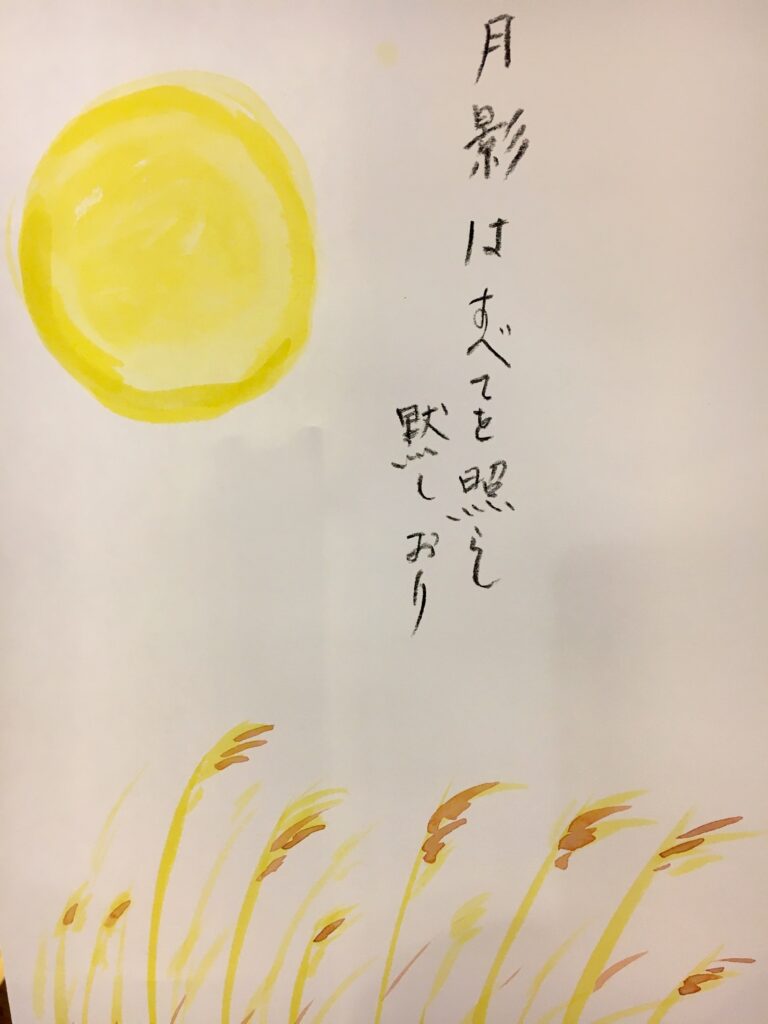 月影はすべてを照らし
黙しおり